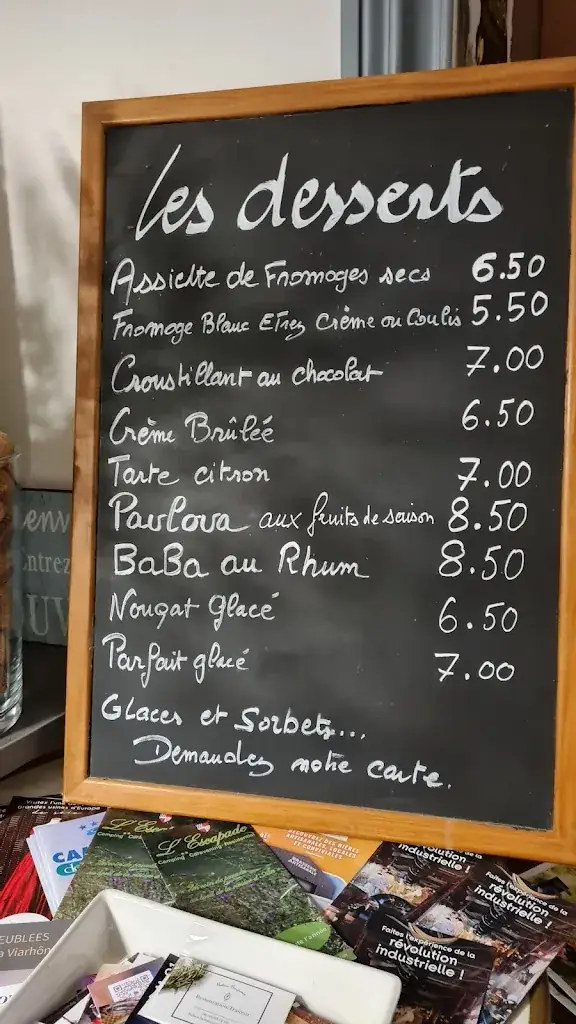 Les desserts
Assiette de Fromages secs 6.50
Fromage Blanc Etrez Crème ou Coulis 5.50
Croustillant au chocolat 7.00
Crème Brûlée 6.50
Tarte citron 7.00
Pavlova aux fruits de saison 8.50
BaBa au Rhum 8.50
Nougat glacé 6.50
Parfait glacé 7.00
Glaces et Sorbets...
Demandez notre carte.
Entrez
L'Escapade
Camping
L'Escapade
Camping
révolution
industrielle !
révolution
industrielle !
Faites l'expérience de la
révolution
industrielle !
EUBLEES
Viarhôna